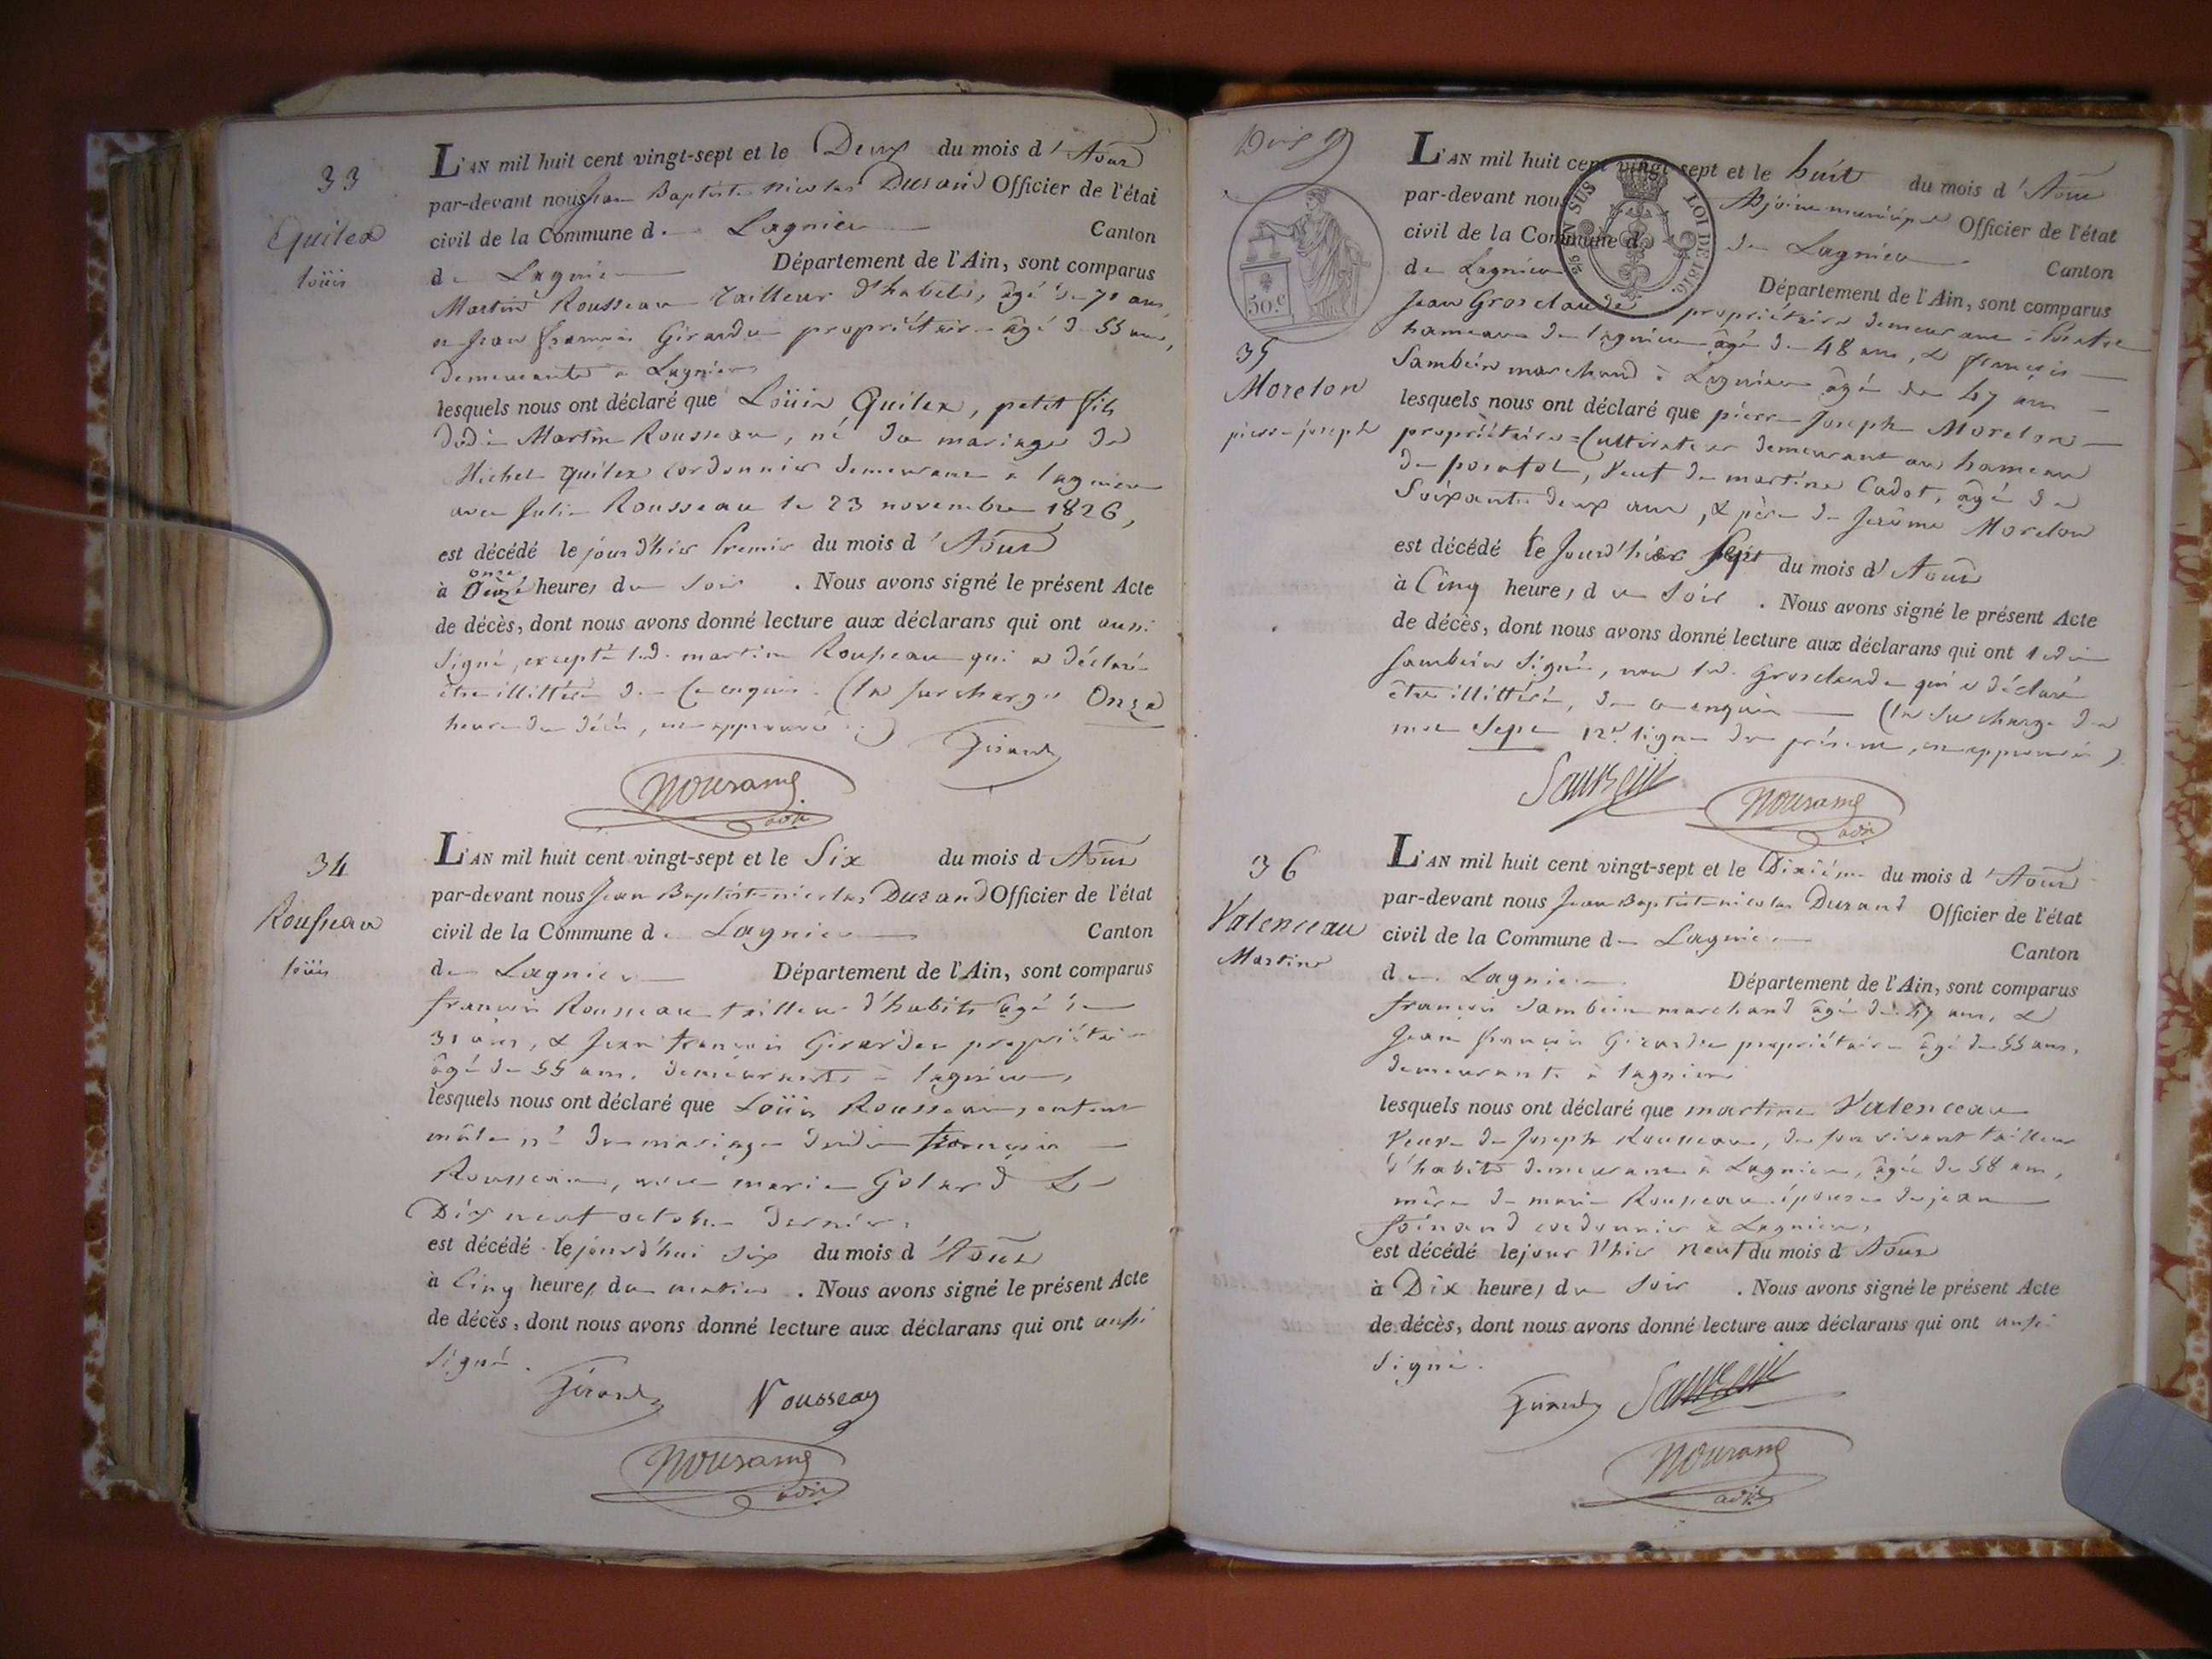 33
Quilex
loüis
L'AN mil huit cent vingt-sept et le Deux du mois d'Aout
par-devant nous Jean Baptiste Nicolas Durand Officier de l'état
civil de la Commune de Lagnieu Canton
de Lagnieu Département de l'Ain, sont comparus
Martin Rousseau tailleur d'habits, âgé de 71 ans,
et Jean françois Girardu propriétaire âgé de 55 ans,
demeurants à Lagnieu
lesquels nous ont déclaré que Loüis Quilex, petit fils
dudi Martin Rousseau, né du mariage de
Michel Quilex cordonnier demeurant à lagnieu
avec Julie Rousseau le 23 novembre 1826,
est décédé le jour d'hier Premier du mois d'Aout
à onze heures du soir . Nous avons signé le présent Acte
de décès, dont nous avons donné lecture aux déclarans qui ont aussi
signé, excepté led. martin Rousseau qui a déclaré
être illittéré de ce enquis. (la surcharge Onze
heure du décès, est approuvé)
34
Rousseau
loüis
L'AN mil huit cent vingt-sept et le Six du mois d Aout
par-devant nous Jean Baptiste nicolas Durand Officier de l'état
civil de la Commune de Lagnieu Canton
de Lagnieu Département de l'Ain, sont comparus
françois Rousseau tailleur d'habits âgé de
31 ans, & Jean françois Girardu propriétaire
âgé de 55 ans. demeurants à lagnieu,
lesquels nous ont déclaré que Loüis Rousseau, enfant
mâle né du mariage dudi françois
Rousseau, avec marie Golard le
Dix neuf octobre dernier,
est décédé le jourd'hui six du mois d'Aout
à Cinq heures du matin . Nous avons signé le présent Acte
de décès, dont nous avons donné lecture aux déclarans qui ont aussi
signé.
Rousseau
35
Morelon
pierre joseph
50.c
EN SUS
LOI DE 1816.
L'AN mil huit cent vingt-sept et le huit du mois d'Aout
par-devant nous Adjoint municipal Officier de l'état
civil de la Commune de de Lagnieu Canton
de Lagnieu Département de l'Ain, sont comparus
Jean Grosclaude propriétaire demeurant à
hameau de lagnieu âgé de 48 ans, & françois
Sambein marchand à Lagnieu âgé de 47 ans
lesquels nous ont déclaré que pierre Joseph Morelon
propriétaire=Cultivateur demeurant au hameau
de , Veuf de martine Cadot, âgé de
Soixante deux ans, & père de Jerôme Morelon
est décédé le Jourd'hier sept du mois d'Aout
à Cinq heures du soir . Nous avons signé le présent Acte
de décès, dont nous avons donné lecture aux déclarans qui ont ledi
Sambein signé, non led. Grosclaude qui a déclaré
être illittéré, de ce enquis (la surcharge du
mot Sept 12e. ligne du présent, est approuvée)
36
Valenceau
Martine
L'AN mil huit cent vingt-sept et le Dixième du mois d'Aout
par-devant nous Jean Baptiste nicolas Durand Officier de l'état
civil de la Commune de Lagnieu Canton
de Lagnieu Département de l'Ain, sont comparus
françois Sambein marchand âgé de 47 ans, &
Jean françois Girardu propriétaire âgé de 55 ans,
demeurants à lagnieu
lesquels nous ont déclaré que martine Valenceau
Veuve de Joseph Rousseau, de son vivant tailleur
d'habits demeurant à Lagnieu, âgée de 58 ans,
mère de marie Rousseau épouse de jean
cordonnier à Lagnieu,
est décédé le jour d'hier neuf du mois d Aout
à Dix heures du soir . Nous avons signé le présent Acte
de décès, dont nous avons donné lecture aux déclarans qui ont aussi
signé.